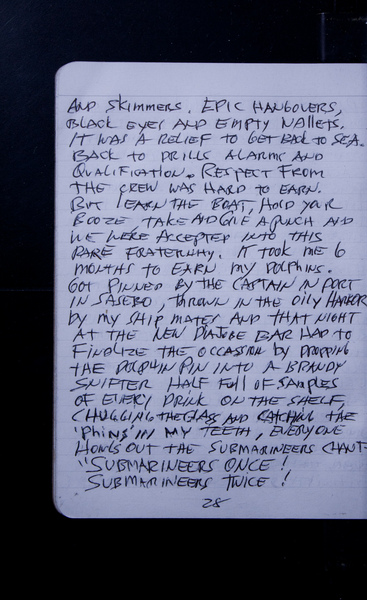 AND SKIMMERS. EPIC HANGOVERS,
BLACK EYES AND EMPTY WALLETS.
IT WAS A RELIEF TO GET BACK TO SEA.
BACK TO DRILLS ALARMS AND
QUALIFICATION. RESPECT FROM
THE CREW WAS HARD TO EARN.
BUT LEARN THE BOAT, HOLD YOUR
BOOZE TAKE AND GIVE A PUNCH AND
WE WERE ACCEPTED INTO THIS
RARE FRATERNITY. IT TOOK ME 6
MONTHS TO EARN MY DOLPHINS.
GOT PINNED BY THE CAPTAIN IN PORT
IN SASEBO, THROWN IN THE OILY HARBOR
BY MY SHIP MATES AND THAT NIGHT
AT THE NEW BAR HAD TO
FINALIZE THE OCCASION BY DROPPING
THE DOLPHIN PIN INTO A BRANDY
SNIFTER HALF FULL OF SAMPLES
OF EVERY DRINK ON THE SHELF,
CHUGGING THE GLASS AND CATCHING THE
'PHINS' IN MY TEETH, EVERYONE
HOWLS OUT THE SUBMARINEERS CHANT-
"SUBMARINEERS ONCE!
SUBMARINEERS TWICE!
28